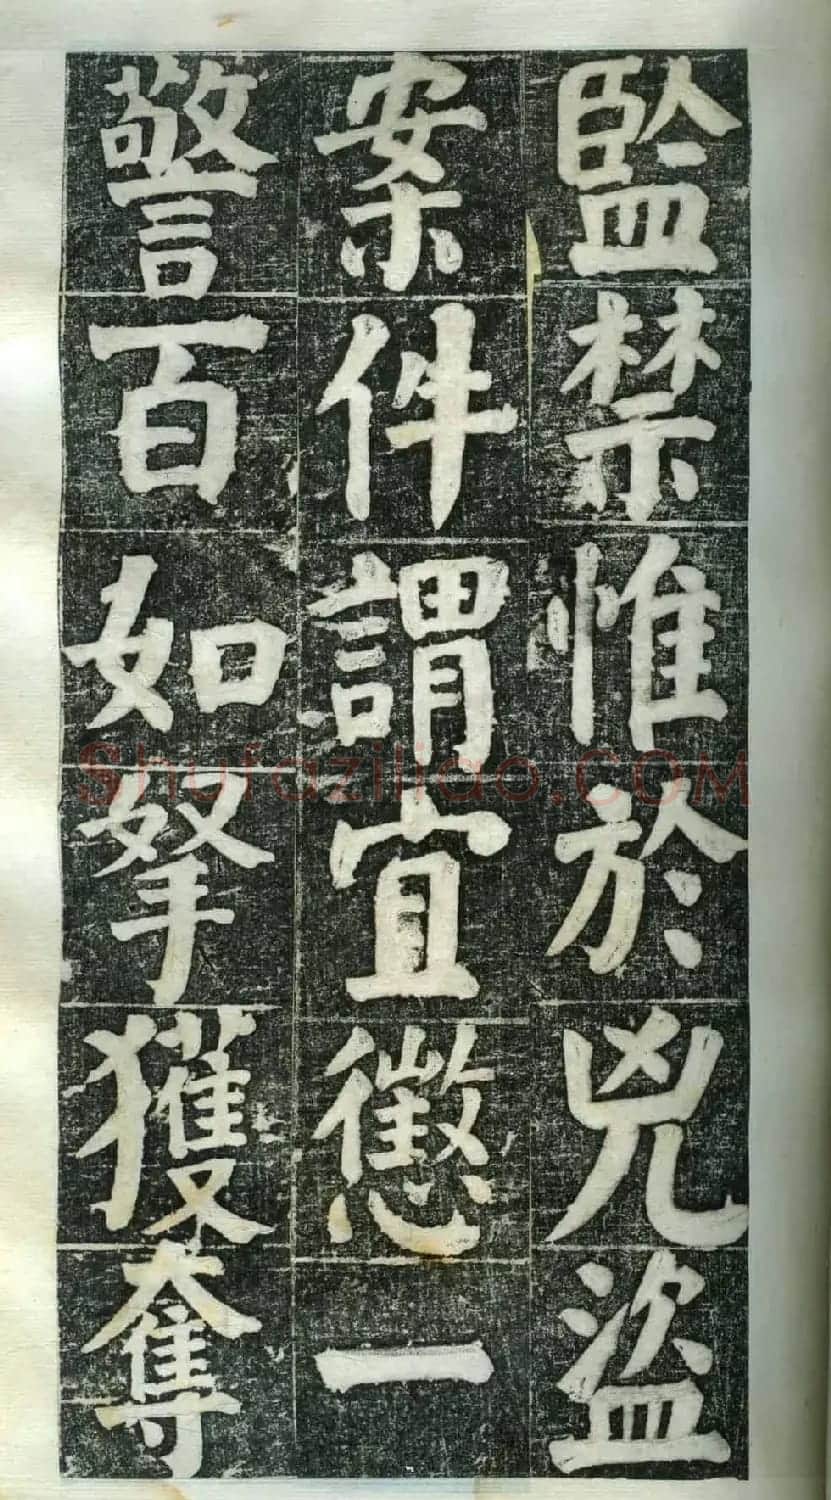 監禁惟於兇盜
案件謂宜懲一
警百如拏獲奪
Shufaziliao.COM